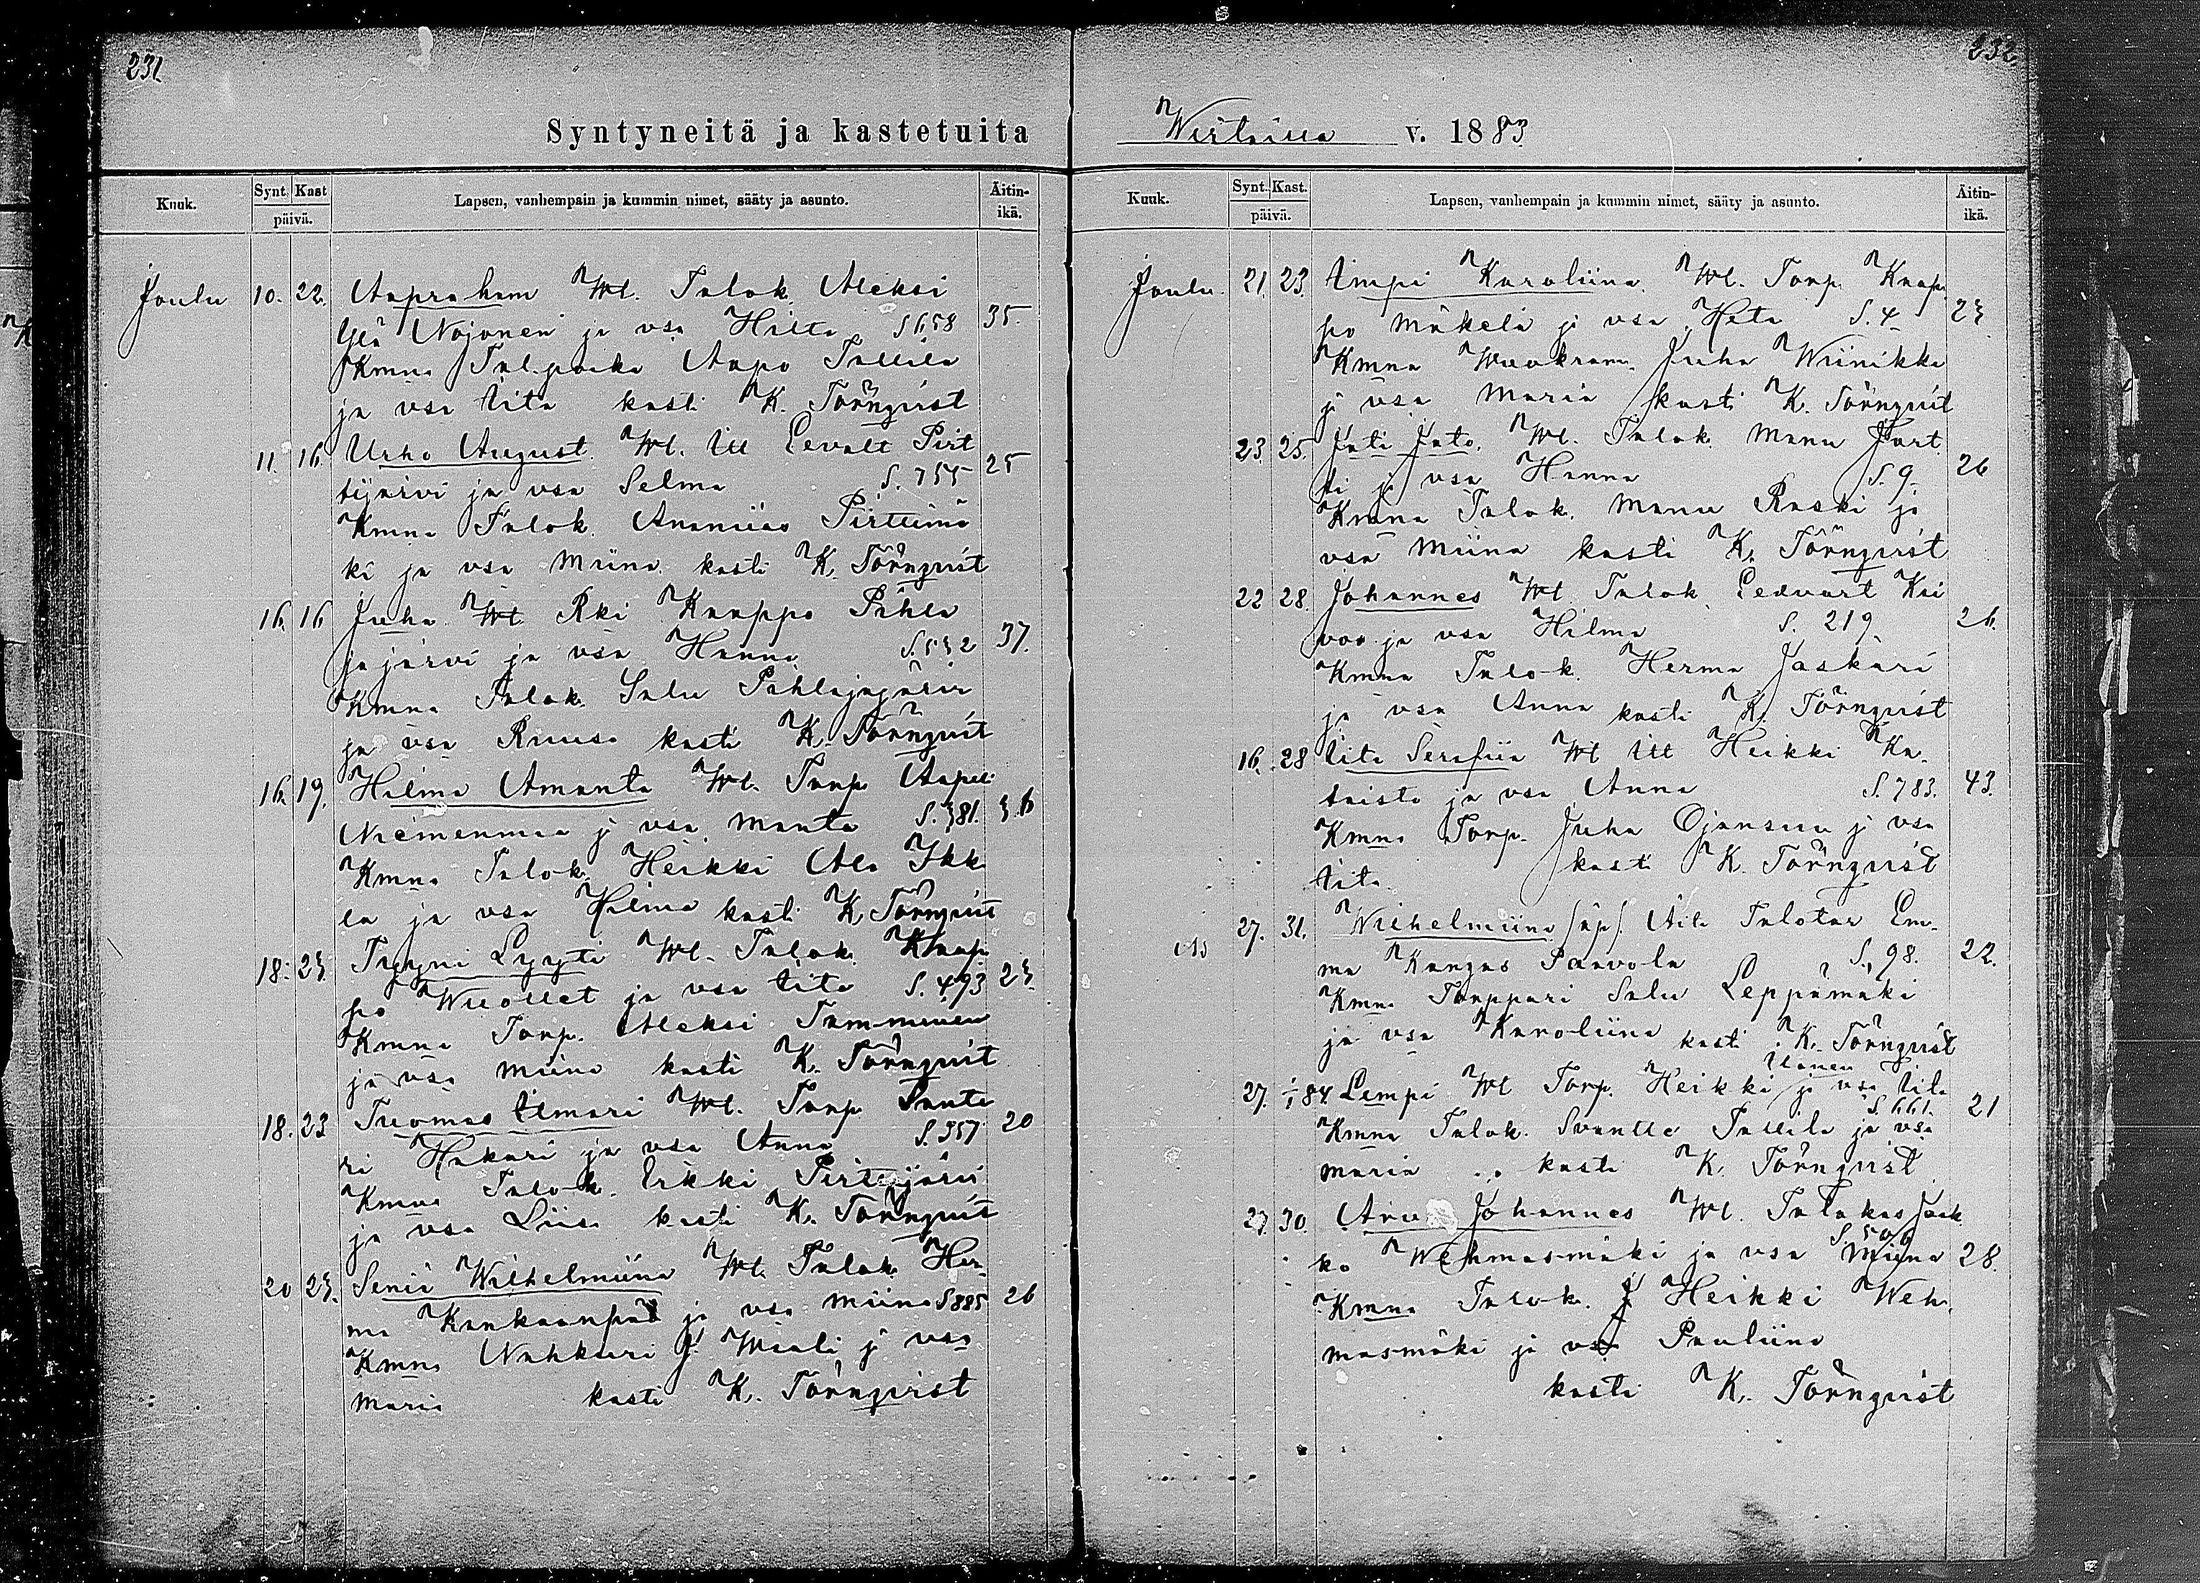 231.
Syntyneitä ja kastetuita
Kuuk. Synt. Kast päivä. Lapsen, vanhempain ja kummin nimet, sääty ja asunto. Äitin-ikä.
Joulu 10. 22. Aapraham Wl. Talok. Aleksi
Ylä Nojonen ja vsa Hilta S 658 35.
Kmna Tal.poika Aapo Tallila
ja vsa Iita kasti K. Törnqvist
11. 16. Urho August. Wl. Itl Eevald Pirt
tijärvi ja vsa Selma S. 755 25
Kmna Talok. Ananiias Pirttimä
ki ja vsa Miina kasti K. Törnqvist
16. 16 Juha Wl Rki Knaappo Pihla
jajärvi ja vsa Hanna S. 532 37.
Kmna Talok. Salu Pihlajajärvi
ja vsa Ruusa kasti K. Törnqvist
16. 19. Hilma Amanta Wl. Torp. Aapeli
Niemenmaa j vsa Manta S. 381. 36
Kmna Talok. Heikki Ala Ikk
la ja vsa Hilma kasti K Törnqvist
18. 23. Tyyni Lyyti Wl. Talok. Knaap
po Wuollet ja vsa Iita S. 493 23
Kmna Torp. Aleksi Tamminen
ja vsa Miina kasti K. Törnqvist
18. 23 Tuomas Ilmari Wl. Torp Santa
ri Hakari ja vsa Anna S. 357 20
Kmna Talok. Erkki Pirttijärvi
ja vsa Liisa kasti K. Törnqvist
20 23. Senia Wilhelmiina Wl. Talok. Her
ma Kankaanpää ja vsa Miina S 885 26
Kmna Nahkuri J. Wiali j vsa
Maria kasti K. Törnqvist
232.
v. 1883
Kuuk. Synt. Kast. päivä. Lapsen, vanhempain ja kummin nimet, sääty ja asunto. Äitin-ikä.
Joulu. 21. 23. Impi Karoliina. Wl. Torp. Knap
po Mäkelä ja vsa Heta S. 4 23
Kmna Wuokram. Juha Wiinikka
j vsa Maria kasti K. Törnqvist
23 25. Wl. Talok Manu Jart
ti j vsa Hanna S. 9. 26
Kmna Talok. Manu Raski ja
vsa Miina kasti K. Törnqvist
22 28. Johannes Wl Talok. Eedvart Kii
voo ja vsa Hilma S. 219. 26.
Kmna Talok. Herma Jaskari
ja vsa Anna kasti K. Törnqvist
16. 28 Iita Serafiia Wl Itl Heikki Ka
taisto ja vsa Anna S. 783. 43.
Kmna Torp. Juha Ojansuu j vsa
Iita. kasti K. Törnqvist
27. 31. Wilhelmiina (äp). Äiti Talotar Em
ma Kangas Paavola S. 98. 22.
Kmna Torppari Salu Leppämäki
ja vsa Karoliina kasti K. Törnqvist
27. 1/1 84 Lempi Wl Torp. Heikki Ilonen j vsa Iita
S. 661. 21
Kmna Talok. Svantte Tallila ja vsa
Maria kasti K. Törnqvist
27. 30. Arvi Johannes Wl. Talokas Jaak
ko Wehmasmäki ja vsa Miina S. 506 28.
Kmna Talok. J Heikki Weh
masmäki ja vsa Pauliina
kasti K. Törnqvist